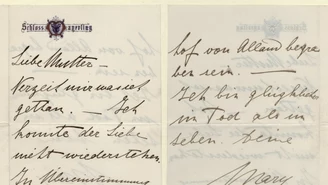 Schloss Mayerling
Liebe Mutter –
Verzeih mir was ich
gethan. – Ich
konnte der Liebe
nicht wiederstehen.
In Übereinstimmung
hof von Alland begra
ben sein. –
Ich bin glücklicher
im Tod als im
Leben. Deine
Mary